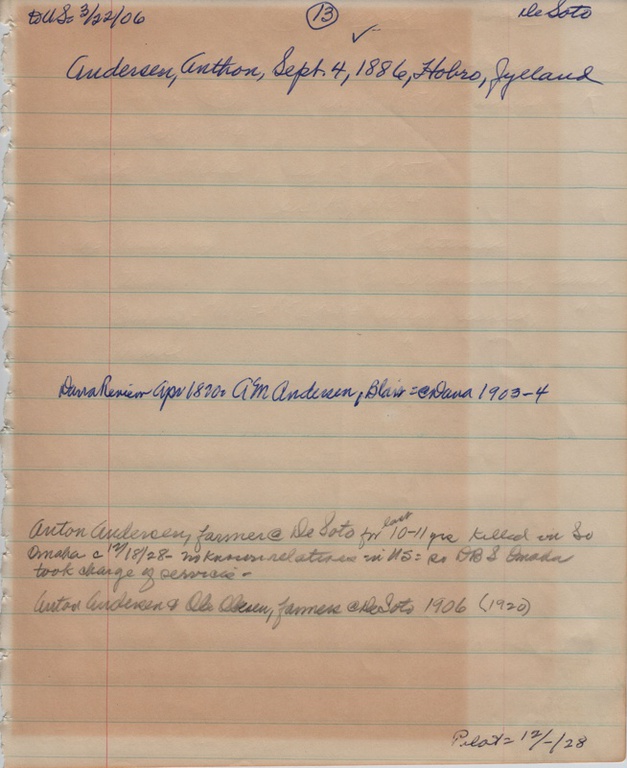 DUS= 3/22/06 (13) De Soto
✓
Andersen, Anthon, Sept. 4, 1886, Hobro, Jylland
Dana Review Apr 1820= A M Andersen, Blair = @ Dana 1903-4
Anton Andersen, farmer @ De Soto for last 10-11 yrs killed in So
Omaha c 12/18/28 - no known relatives in US = so DBS Omaha
took charge of services -
Anton Andersen & Ole Olesen, farmers @ De Soto 1906 (1920)
Pilot= 12/-/28